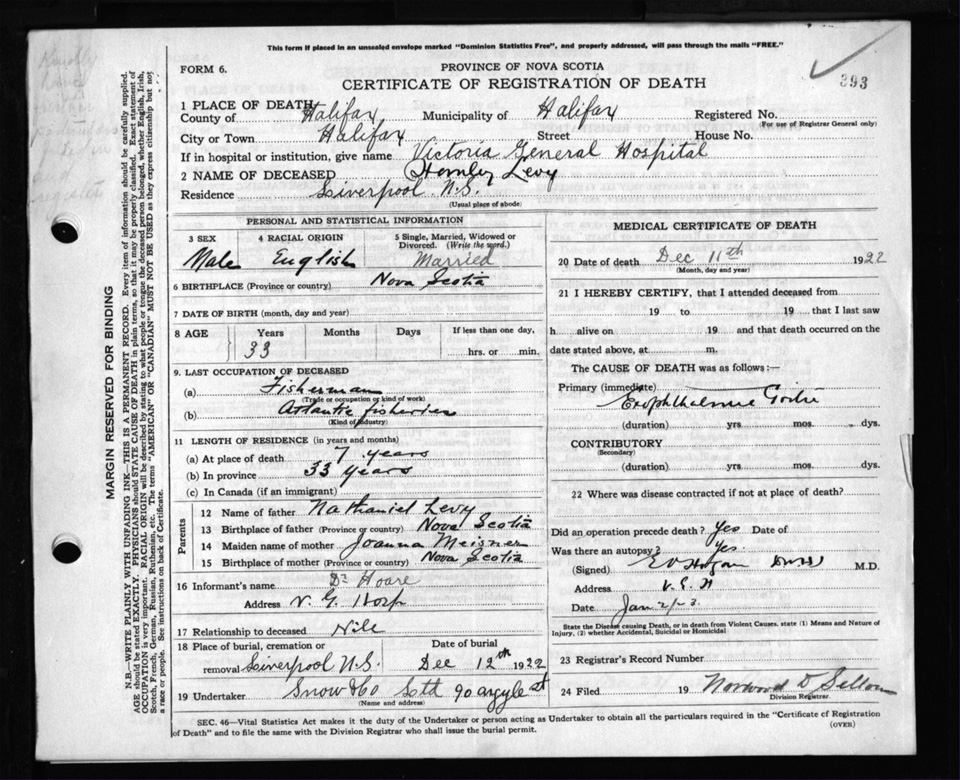 This form if placed in an unsealed envelope marked "Dominion Statistics Free", and properly addressed, will pass through the mails "FREE."
FORM 6.
PROVINCE OF NOVA SCOTIA
CERTIFICATE OF REGISTRATION OF DEATH
393
1 PLACE OF DEATH
County of Halifax Municipality of Halifax Registered No.
(For use of Registrar General only)
City or Town Halifax Street House No.
If in hospital or institution, give name Victoria General Hospital
2 NAME OF DECEASED Levy
Residence Liverpool N.S.
(Usual place of abode)
PERSONAL AND STATISTICAL INFORMATION
3 SEX 4 RACIAL ORIGIN 5 Single, Married, Widowed or Divorced. (Write the word.)
Male English Married
6 BIRTHPLACE (Province or country) Nova Scotia
7 DATE OF BIRTH (month, day and year)
8 AGE Years Months Days If less than one day,
33 hrs. or min.
9. LAST OCCUPATION OF DECEASED
(a) Fisherman
(Trade or occupation or kind of work)
(b) Atlantic fisheries
(Kind of industry)
11 LENGTH OF RESIDENCE (in years and months)
(a) At place of death 7 years
(b) In province 33 years
(c) In Canada (if an immigrant)
Parents
12 Name of father Nathaniel Levy
13 Birthplace of father (Province or country) Nova Scotia
14 Maiden name of mother Joanna Meisner
15 Birthplace of mother (Province or country) Nova Scotia
16 Informant's name Dr Hoare
Address V. G. Hosp
17 Relationship to deceased Nile
18 Place of burial, cremation or removal Liverpool N.S. Date of burial Dec 12th 1922
19 Undertaker Snow & Co Ltd 90 argyle st
(Name and address)
MEDICAL CERTIFICATE OF DEATH
20 Date of death Dec 11th 1922
(Month, day and year)
21 I HEREBY CERTIFY, that I attended deceased from
19 to 19 that I last saw
h alive on 19 and that death occurred on the
date stated above, at m.
The CAUSE OF DEATH was as follows:—
Primary (immediate)
Exophthalmic Goitre
(duration) yrs. mos. dys.
CONTRIBUTORY
(Secondary)
(duration) yrs. mos. dys.
22 Where was disease contracted if not at place of death?
Did an operation precede death? Yes Date of
Was there an autopsy? Yes.
(Signed) M.D.
Address
Date Jan
State the Disease causing Death, or in death from Violent Causes, state (1) Means and Nature of
Injury, (2) whether Accidental, Suicidal or Homicidal
23 Registrar's Record Number
24 Filed 19 Norwood
Division Registrar.
SEC. 46—Vital Statistics Act makes it the duty of the Undertaker or person acting as Undertaker to obtain all the particulars required in the "Certificate of Registration
of Death" and to file the same with the Division Registrar who shall issue the burial permit.
(OVER)
MARGIN RESERVED FOR BINDING
N.B.—WRITE PLAINLY WITH UNFADING INK—THIS IS A PERMANENT RECORD. Every item of information should be carefully supplied.
AGE should be stated EXACTLY. PHYSICIANS should STATE CAUSE OF DEATH in plain terms, so that it may be properly classified. Exact statement of
OCCUPATION is very important. RACIAL ORIGIN will be described by stating to what people or tongue the deceased person belonged, whether English, Irish,
Scotch, French, German, Russian, Ruthenian, etc. The terms "AMERICAN" OR "CANADIAN" MUST NOT BE USED as they express citizenship but not
a race or people. See instructions on back of Certificate.